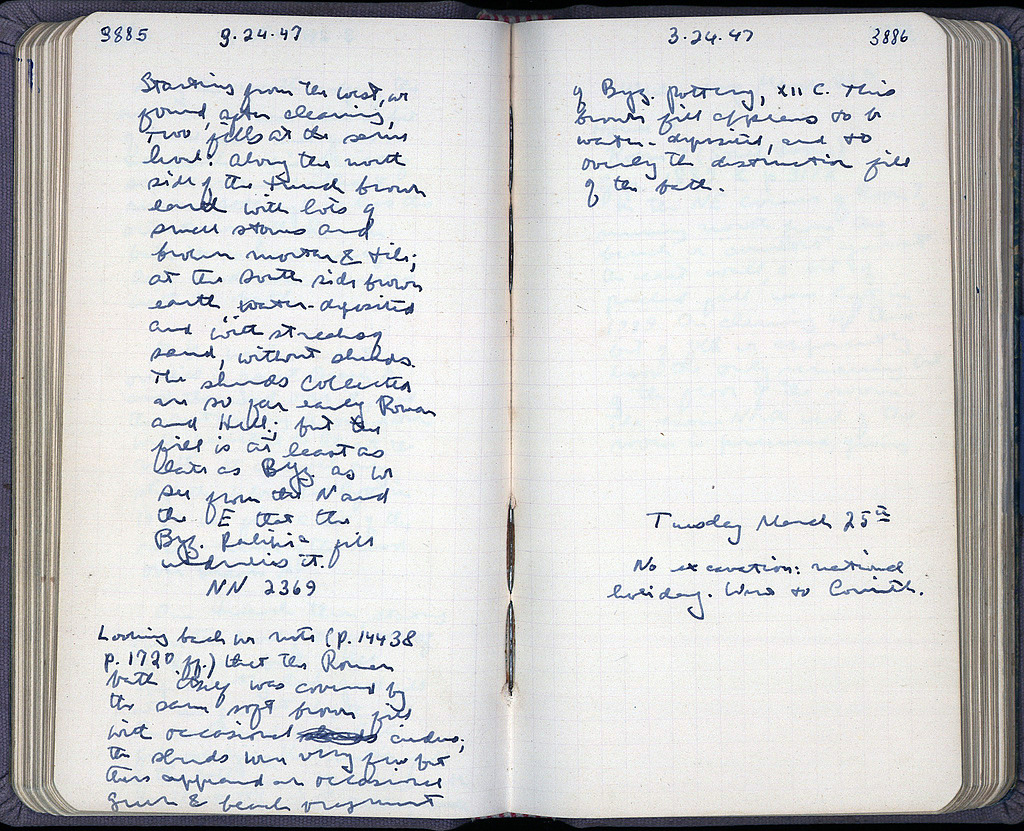 3885 3.24.47
Starting from the west, we
found, after cleaning,
two fills at the same
level: along the north
side of the trench brown
earth with lots of
small stones and
broken mortar & tile;
at the south side brown
earth water-deposited
and with streaks of
sand, without sherds.
The sherds collected
are so far early Roman
and Hell.; but the
fill is at least as
late as Byz. as we
see from the N and
the E that the
Byz. fill
underlies it.
NN 2369
Looking back we note (p. 1443 &
p. 1720 ff.) that the Roman
bath itself was covered by
the same soft brown fill
with occasional cinders;
the sherds were very few but
there appeared an occasional
green & black fragment
3.24.47 3886
of Byz. pottery, XII C. This
brown fill appears to be
water-deposited, and to
overly the destruction fill
of the bath.
Tuesday March 25th
No excavation: national
holiday. Went to Corinth.